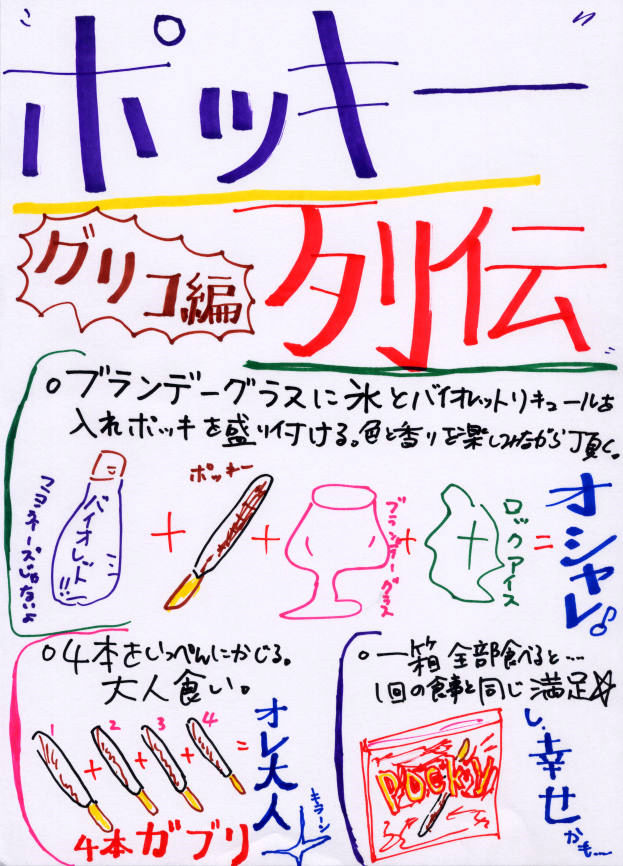 "ポッキー"
グリコ編
列伝"
○ブランデーグラスに氷とバイオレットリキュールを
入れポッキを盛り付ける。色と香りを楽しみながら頂く。
マヨネーズじゃないよ
バイオレット!!
+
ポッキー
+
ブランデーグラス
+
ロックアイス
=
オシャレ♪
○4本をいっぺんにかじる。
大人食い。
1 + 2 + 3 + 4 =
オレ大人
キラーン
4本ガブリ
○一箱全部食べると…
1回の食事と同じ満足☆
POCKY
し、幸せかも…